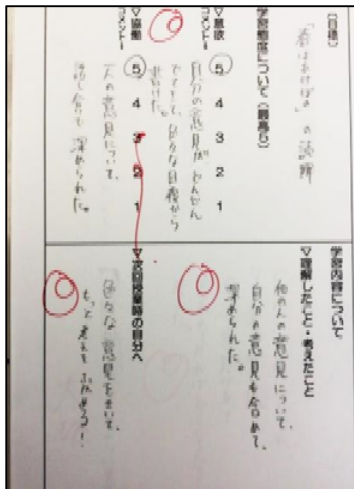 【目標】
「春はあけぼの」の読解
学習態度について（最高５）
▽意欲
5 4 3 2 1
コメント：
自分の意見がどんどん
でてきて、色々な目線から
書けた。
▽協働
5 4 3 2 1
コメント：
一人の意見について、
話し合って深められた。
学習内容について
▽理解したこと・考えたこと
他の人の意見について、
自分の意見も含めて、
深められた。
▽次回授業時の自分へ
色々な意見をきいて、
もっと考えを ふかめる！